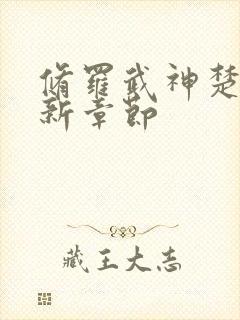 脩羅武神楚
新章節
藏王大志